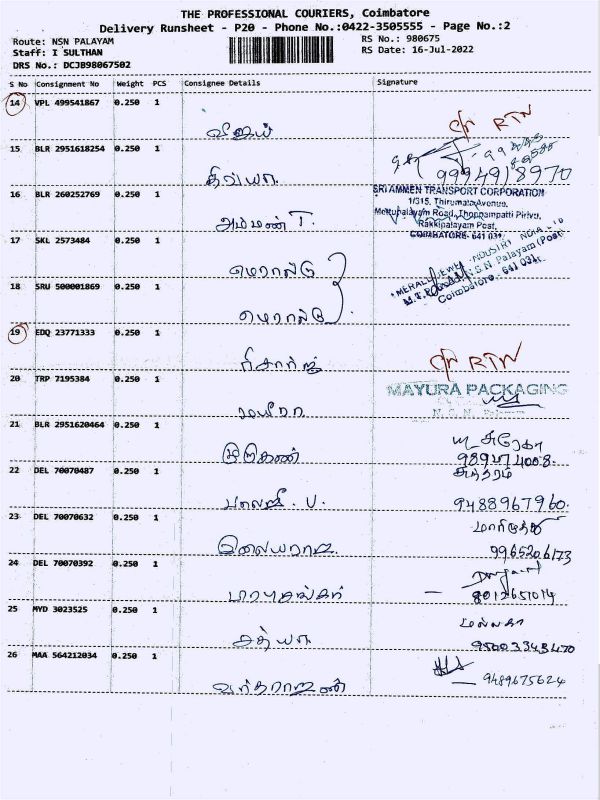 THE PROFESSIONAL COURIERS, Coimbatore
Delivery Runsheet - P20 - Phone No.:0422-3505555 - Page No.:2
Route: NSN PALAYAM
RS No.: 980675
Staff: I SULTHAN
RS Date: 16-Jul-2022
DRS No.: DCJB98067502
S No Consignment No Weight PCS Consignee Details Signature
14 VPL 499541867 0.250 1
விஜய்
RTN
15 BLR 2951618254 0.250 1
திவ்யா
9994918970
16 BLR 260252769 0.250 1
அம்மன் T.
SRI AMMEN TRANSPORT CORPORATION
1/315, Thirumala Avenue,
Mettupalayam Road, Thoppampatti Pirivu,
Rakkipalayam Post,
COIMBATORE- 641 031.
17 SKL 2573484 0.250 1
மெரால்டு
N.S.N. Palayam (Post)
Coimbatore - 641 031.
18 SRU 500001869 0.250 1
மெரால்டு
19 EDQ 23771333 0.250 1
ரிசார்ஜ்
RTN
20 TRP 7195384 0.250 1
மயூரா
MAYURA PACKAGING
N.S.N. Palayam
21 BLR 2951620464 0.250 1
முருகன்
22 DEL 70070487 0.250 1
பாலாஜி . V.
சுந்தரம்
9488967960
23 DEL 70070632 0.250 1
இளையராஜா
9965206173
24 DEL 70070392 0.250 1
8012651014
25 MYD 3023525 0.250 1
சத்யா
மல்லிகா
26 MAA 564212034 0.250 1
வரதராஜன்
9489675624